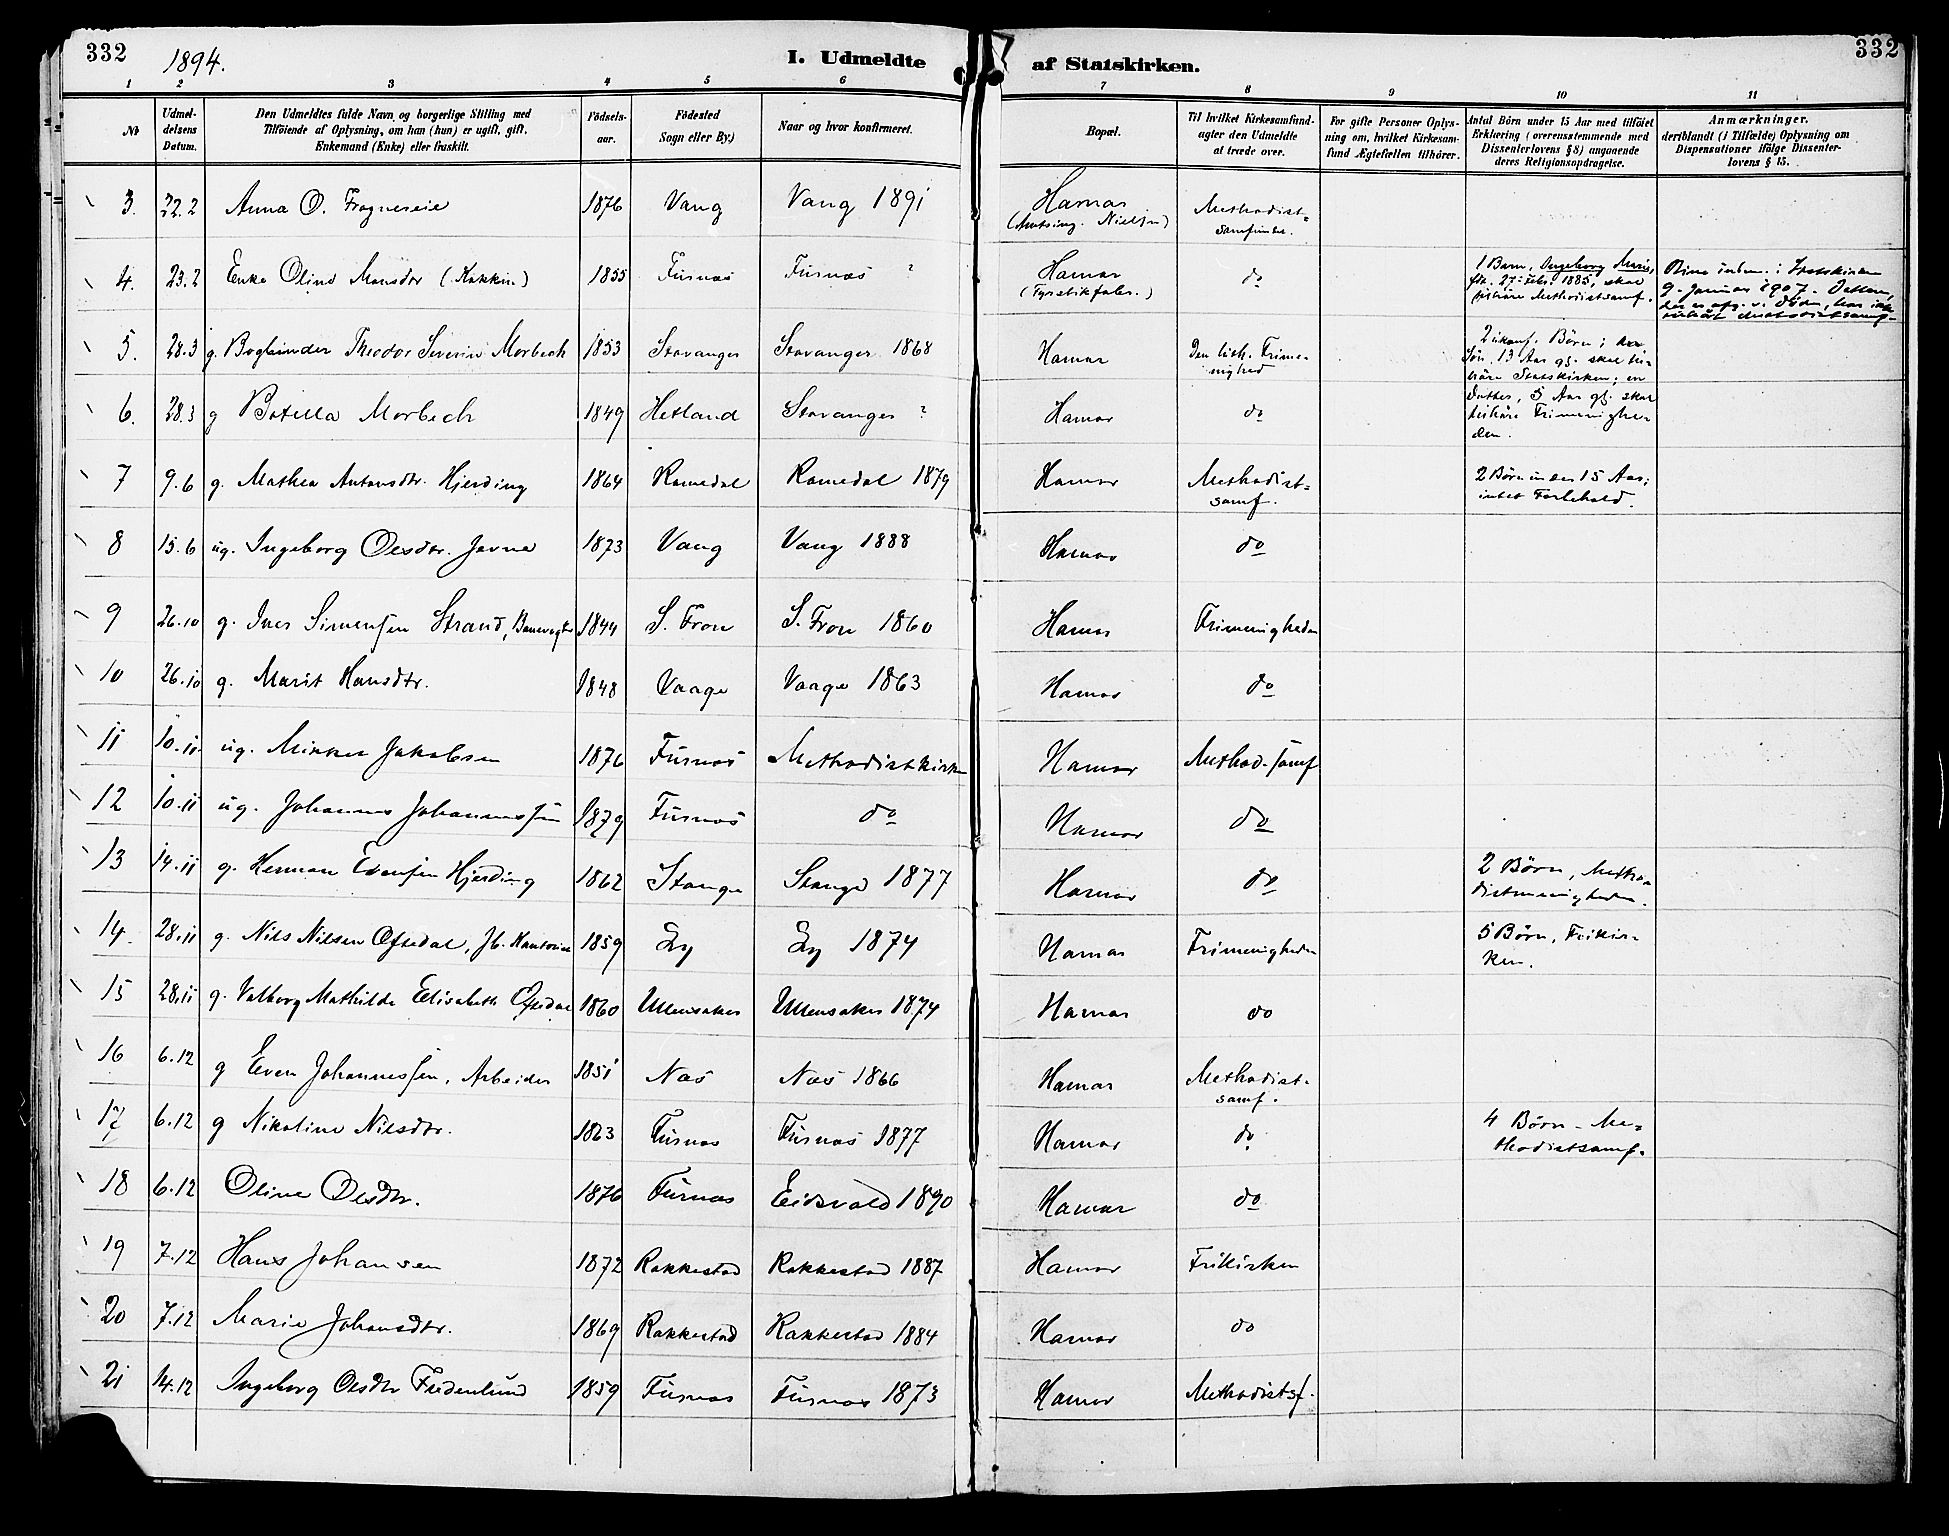 332
1894.
I. Udmeldte
af Statskirken.
332
1 2 3 4 5 6 7 8 9 10 11
No
Udmel-
delsens
Datum.
Den Udmeldtes fulde Navn og borgerlige Stilling med
Tilföiende af Oplysning, om han (hun) er ugift, gift,
Enkemand (Enke) eller fraskilt.
Födsels-
aar.
Födested
Sogn eller By.)
Naar og hvor konfirmeret.
Bopæl.
Til hvilket Kirkesamfund-
agter den Udmeldte
at træde over.
For gifte Personer Oplys-
ning om, hvilket Kirkesam-
fund Ægtefællen tilhörer.
Antal Börn under 15 Aar med tilföiet
Erklæring (overensstemmende med
Dissenterlovens § 8) angaaende
deres Religionsopdragelse.
Anmærkninger,
deriblandt (i Tilfælde) Oplysning om
Dispensationer ifölge Dissenter-
lovens § 15.
3. 22.2 Anna O. Frogneseie 1876 Vang Vang 1891 Hamar Methodist=
( Nielsen) samfundet.
4. 23.2 Enke Oline Monsdtr 1855 Furnæs Furnæs ? Hamar do 1 Barn, Ingeborg Marie,
(Fyrstikfabr.) fdt. 27 Febr. 1885, skal
tilhöre Methodistsamf.
Oline indm. i Statskirken
9. Januar 1907. Datteren,
5. 28.3 g. Bogbinder Theodor Severin Morbech 1853 Stavanger Stavanger 1868 Hamar Den luth. Frime-
nighed
2 ukonf. Börn;
Sön 13 Aar gl. skal til-
höre Statskirken; en
6. 28.3 g Botilla Morbech 1849 Hetland Stavanger ? Hamar do
Datter, 5 Aar gl. skal
tilhöre Frimenighe-
den.
7 9.6 g. Mathea Antonsdtr. Hjerding 1864 Romedal Romedal 1879 Hamar Methodist=
samf.
2 Börn under 15 Aar;
intet Forbehold.
8 15.6 ug. Ingeborg Olesdtr. Jevne 1873 Vang Vang 1888 Hamar do
9 26.10 g. Iver Simensen Strand, Banevogter 1844 S. Fron S. Fron 1860 Hamar Frimenigheden
10 26.10 g. Marit Hansdtr. 1848 Vaage Vaage 1863 Hamar do
11 10.11 ug. Mikkel Jakobsen 1876 Furnæs Methodistkirken Hamar Method. samf
12 10.11 ug. Johannes Johannessen 1879 Furnæs do Hamar do
13 14.11 g. Herman Evensen Hjerding 1862 Stange Stange 1877 Hamar do 2 Börn, Metho-
distmenigheden.
14. 28.11 g. Nils Nilsen Oftedal, Jb. Kontorist 1859 Ly Ly 1874 Hamar Frimenigheden 5 Börn, Frikir-
ken.
15 28.11 g. Valborg Mathilde Elisabeth Oftedal 1860 Ullensaker Ullensaker 1874 Hamar do
16 6.12 g Even Johannessen, Arbeider 1851 Næs Næs 1866 Hamar Methodist-
samf.
17 6.12 g Nikoline Nilsdtr. 1863 Furnæs Furnæs 1877 Hamar do 4 Börn - Me=
thodistsamf.
18 6.12 Oline Olesdtr. 1876 Furnæs Eidsvold 1890 Hamar do
19 7.12 Hans Johansen 1872 Rakkestad Rakkestad 1887 Hamar Frikirken
20 7.12 Marie Johansdtr. 1869 Rakkestad Rakkestad 1884 Hamar do
21 14.12 Ingeborg Olesdtr Fredenlund 1859 Furnæs Furnæs 1873 Hamar Methodistsf.